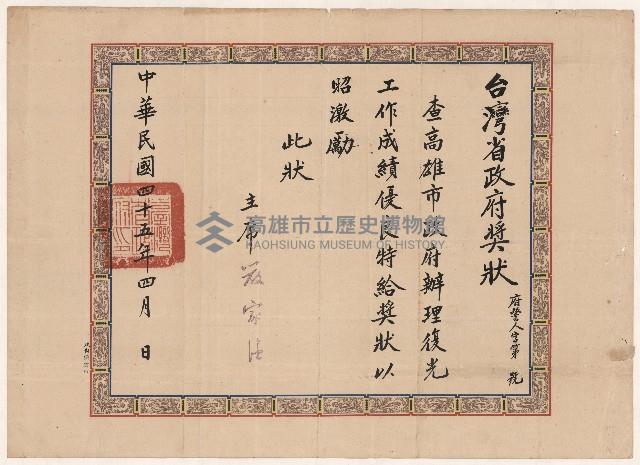 台灣省政府獎狀
府警人字第 號
查高雄市政府辦理復光
工作成績優良特給獎狀以
昭激勵
此狀
主席 嚴家淦
中華民國四十五年四月 日
高雄市立歷史博物館
KAOHSIUNG MUSEUM OF HISTORY